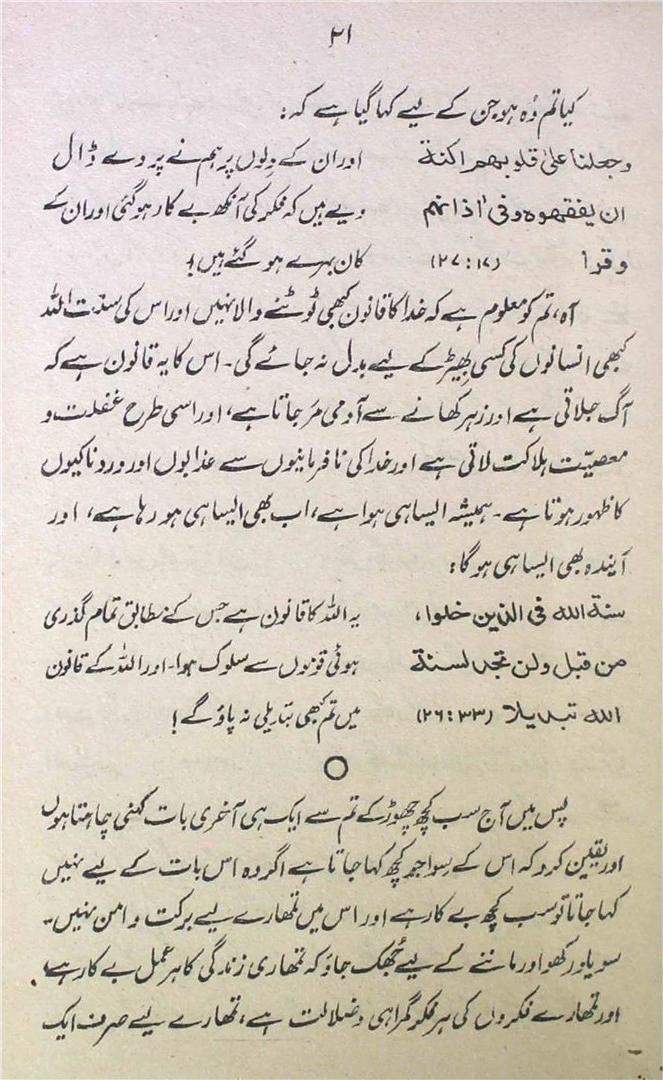 ۲۱
کیا تم وُہ ہو جن کے لیے کہا گیا ہے کہ:
وجعلنا علیٰ قلوبھم اکنۃ اور ان کے دِلوں پر ہم نے پردے ڈال
ان یفقھوہ وفی اٰذانھم دیے ہیں کہ فکر کی آنکھ بے کار ہو گئی اور ان کے
وقرا (۲۷:۱۷) کان بہرے ہو گئے ہیں!
آہ، تم کو معلوم ہے کہ خدا کا قانون کبھی ٹوٹنے والا نہیں اور اس کی سنّت اللہ
کبھی انسانوں کی کسی بھِیڑ کے لیے بدل نہ جائے گی۔ اس کا یہ قانون ہے کہ
آگ جلاتی ہے اور زہر کھانے سے آدمی مَر جاتا ہے، اور اسی طرح غفلت و
معصیّت ہلاکت لاتی ہے اور خدا کی نافرمانیوں سے عذابوں اور دردناکیوں
کا ظہور ہوتا ہے۔ ہمیشہ ایسا ہی ہوا ہے، اب بھی ایسا ہی ہو رہا ہے، اور
آیندہ بھی ایسا ہی ہو گا:
سنۃ اللہ فی الذین خلوا، یہ اللہ کا قانون ہے جس کے مطابق تمام گذری
من قبل ولن تجد لسنۃ ہوئی قوموں سے سلوک ہوا۔ اور اللہ کے قانون
اللہ تبدیلا (۲۶:۳۳) میں تم کبھی تبدیلی نہ پاؤ گے!
پس میں آج سب کچھ چھوڑ کے تم سے ایک ہی آخری بات کہنی چاہتا ہوں
اور یقین کرو کہ اس کے سِوا جو کچھ کہا جاتا ہے اگر وہ اس بات کے لیے نہیں
کہا جاتا تو سب کچھ بے کار ہے اور اس میں تمھارے لیے برکت و امن نہیں۔
سو یاد رکھو اور ماننے کے لیے جُھک جاؤ کہ تمھاری زندگی کا ہر عمل بے کار ہے،
اور تمھارے فکروں کی ہر فکر گمراہی و ضلالت ہے، تمھارے لیے صرف ایک